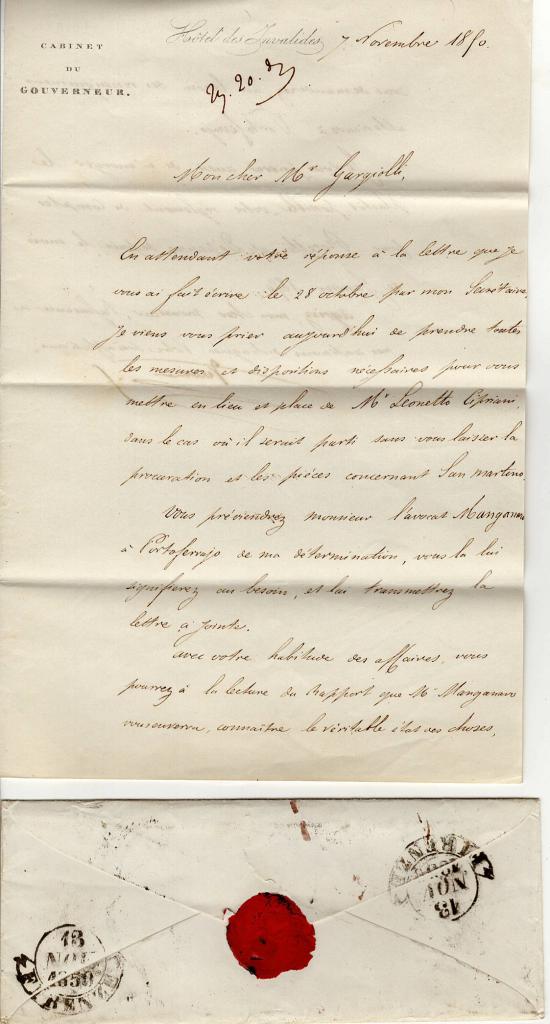 CABINET
DU
GOUVERNEUR.
Hôtel des Invalides, 7 Novembre 1850.
Mon cher Mr Gargiolli,
En attendant votre réponse à la lettre que je
vous ai fait écrire le 28 octobre par mon Secrétaire,
je viens vous prier aujourd'hui de prendre toutes
les mesures et dispositions nécessaires pour vous
mettre en lieu et place de Mr Leonetto Cipriani,
dans le cas où il serait parti sans vous laisser la
procuration et les pièces concernant San martino.
Vous préviendrez monsieur l'avocat Manganaro
à Portoferrajo de ma détermination, vous la lui
signifierez au besoin, et lui transmettrez la
lettre ci jointe.
avec votre habitude des affaires, vous
pourrez à la lecture du Rapport que Mr Manganaro
vous enverra, connaître le véritable état des choses,
FIRENZE
13
NOV
1850
13
NOV
1850
FIRENZE